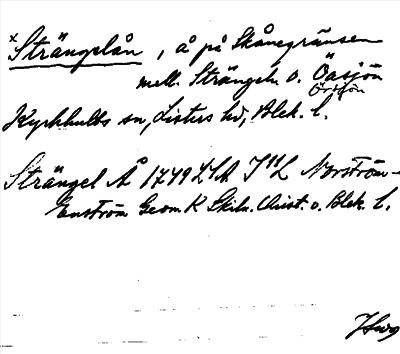 x Strängelån, å på Skånegränsen
mell. Strängeln o. Öasjön
Örsjön
Kyrkhults sn, Listers hd, Blek. l.
Strängel Å 1749 LSA I 11 L Norström-
Enström Geom. K Skiln. Christ. o. Blek. l.